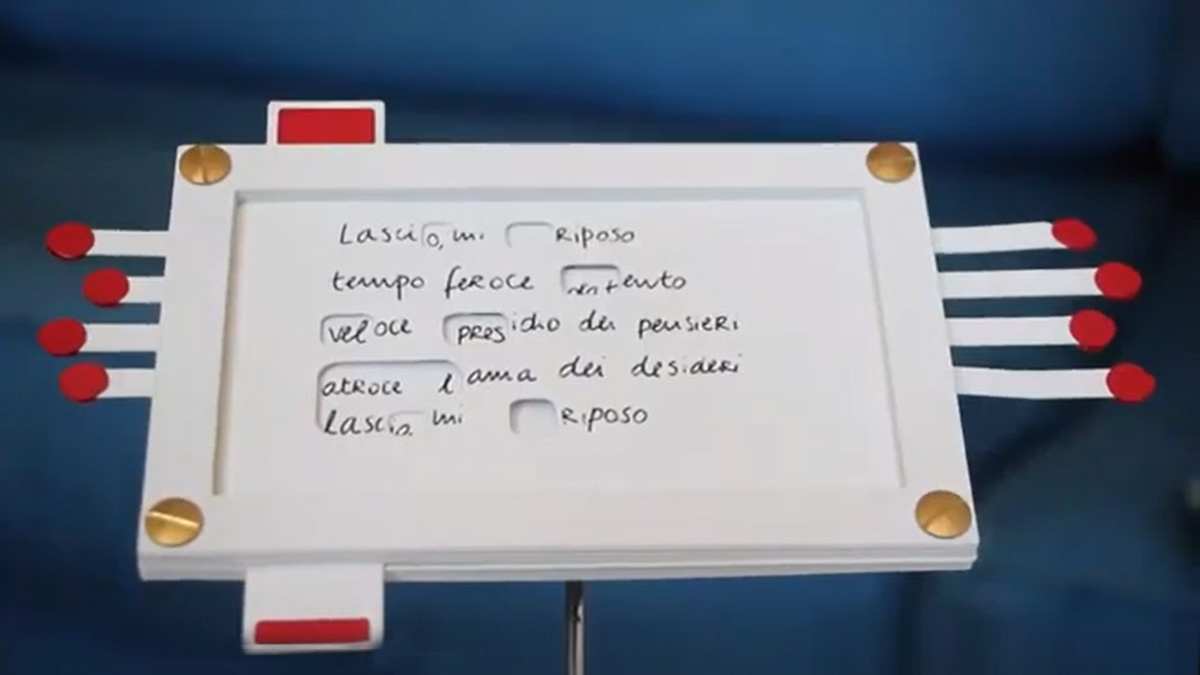 Lascio, mi riposo
tempo feroce tento
veloce presidio dei pensieri
atroce lama dei desideri
lascio mi riposo